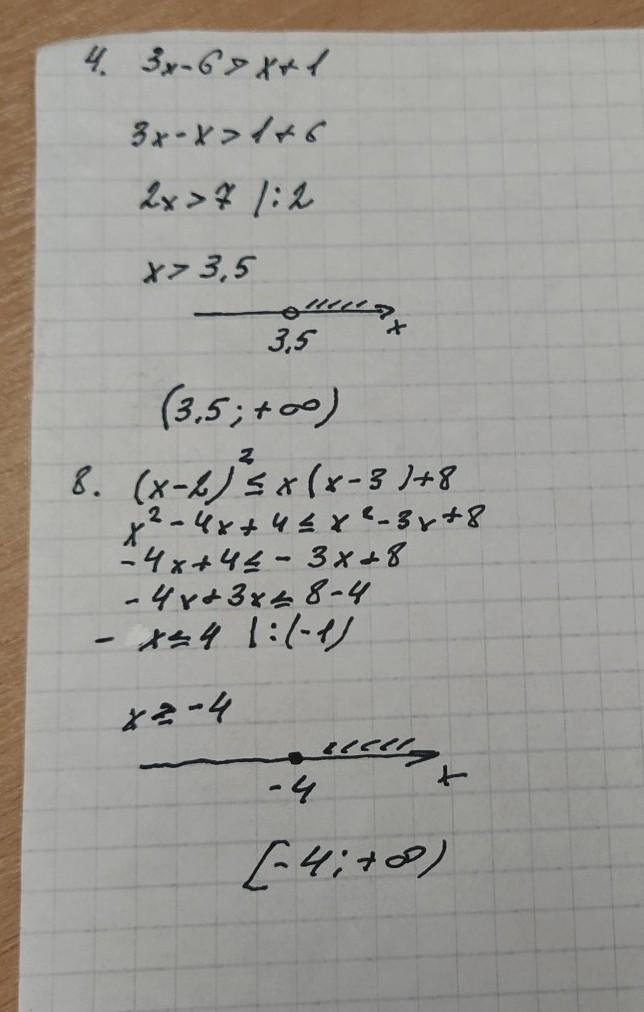 4. 3x-6>x+1
3x-x>1+6
2x>7 |:2
x>3,5
3,5 x
(3,5;+∞)
8. (x-2)²≤x(x-3)+8
x²-4x+4≤x²-3x+8
-4x+4≤-3x+8
-4x+3x≤8-4
-x≤4 |:(-1)
x≥-4
-4 x
[-4;+∞)